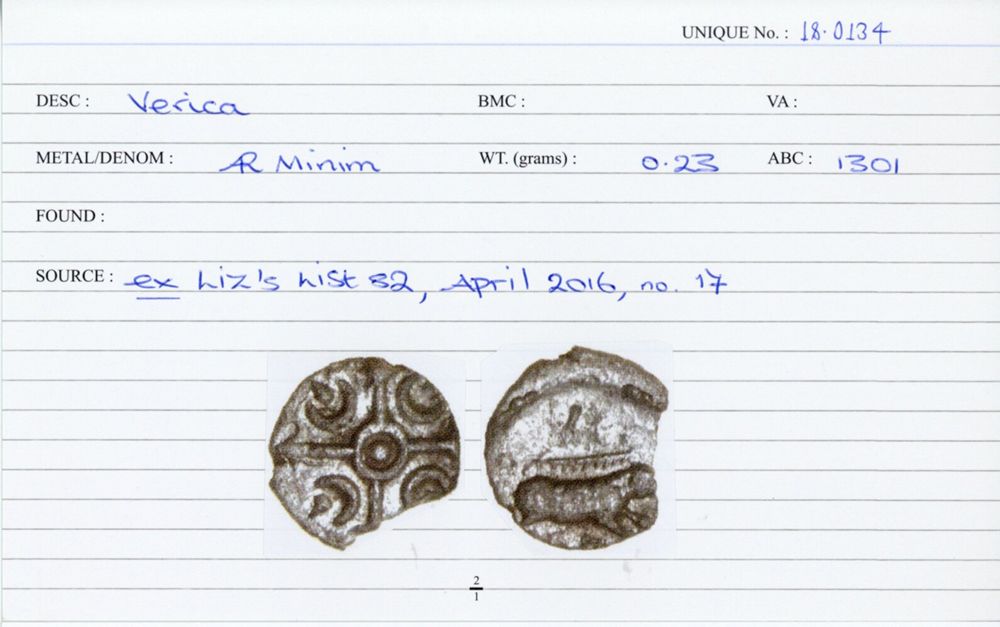 UNIQUE No. : 18.0134
DESC : Verica BMC : VA :
METAL/DENOM : AR Minim WT. (grams) : 0.23 ABC : 1301
FOUND :
SOURCE : ex Liz's List 82, April 2016, no. 17
2
1